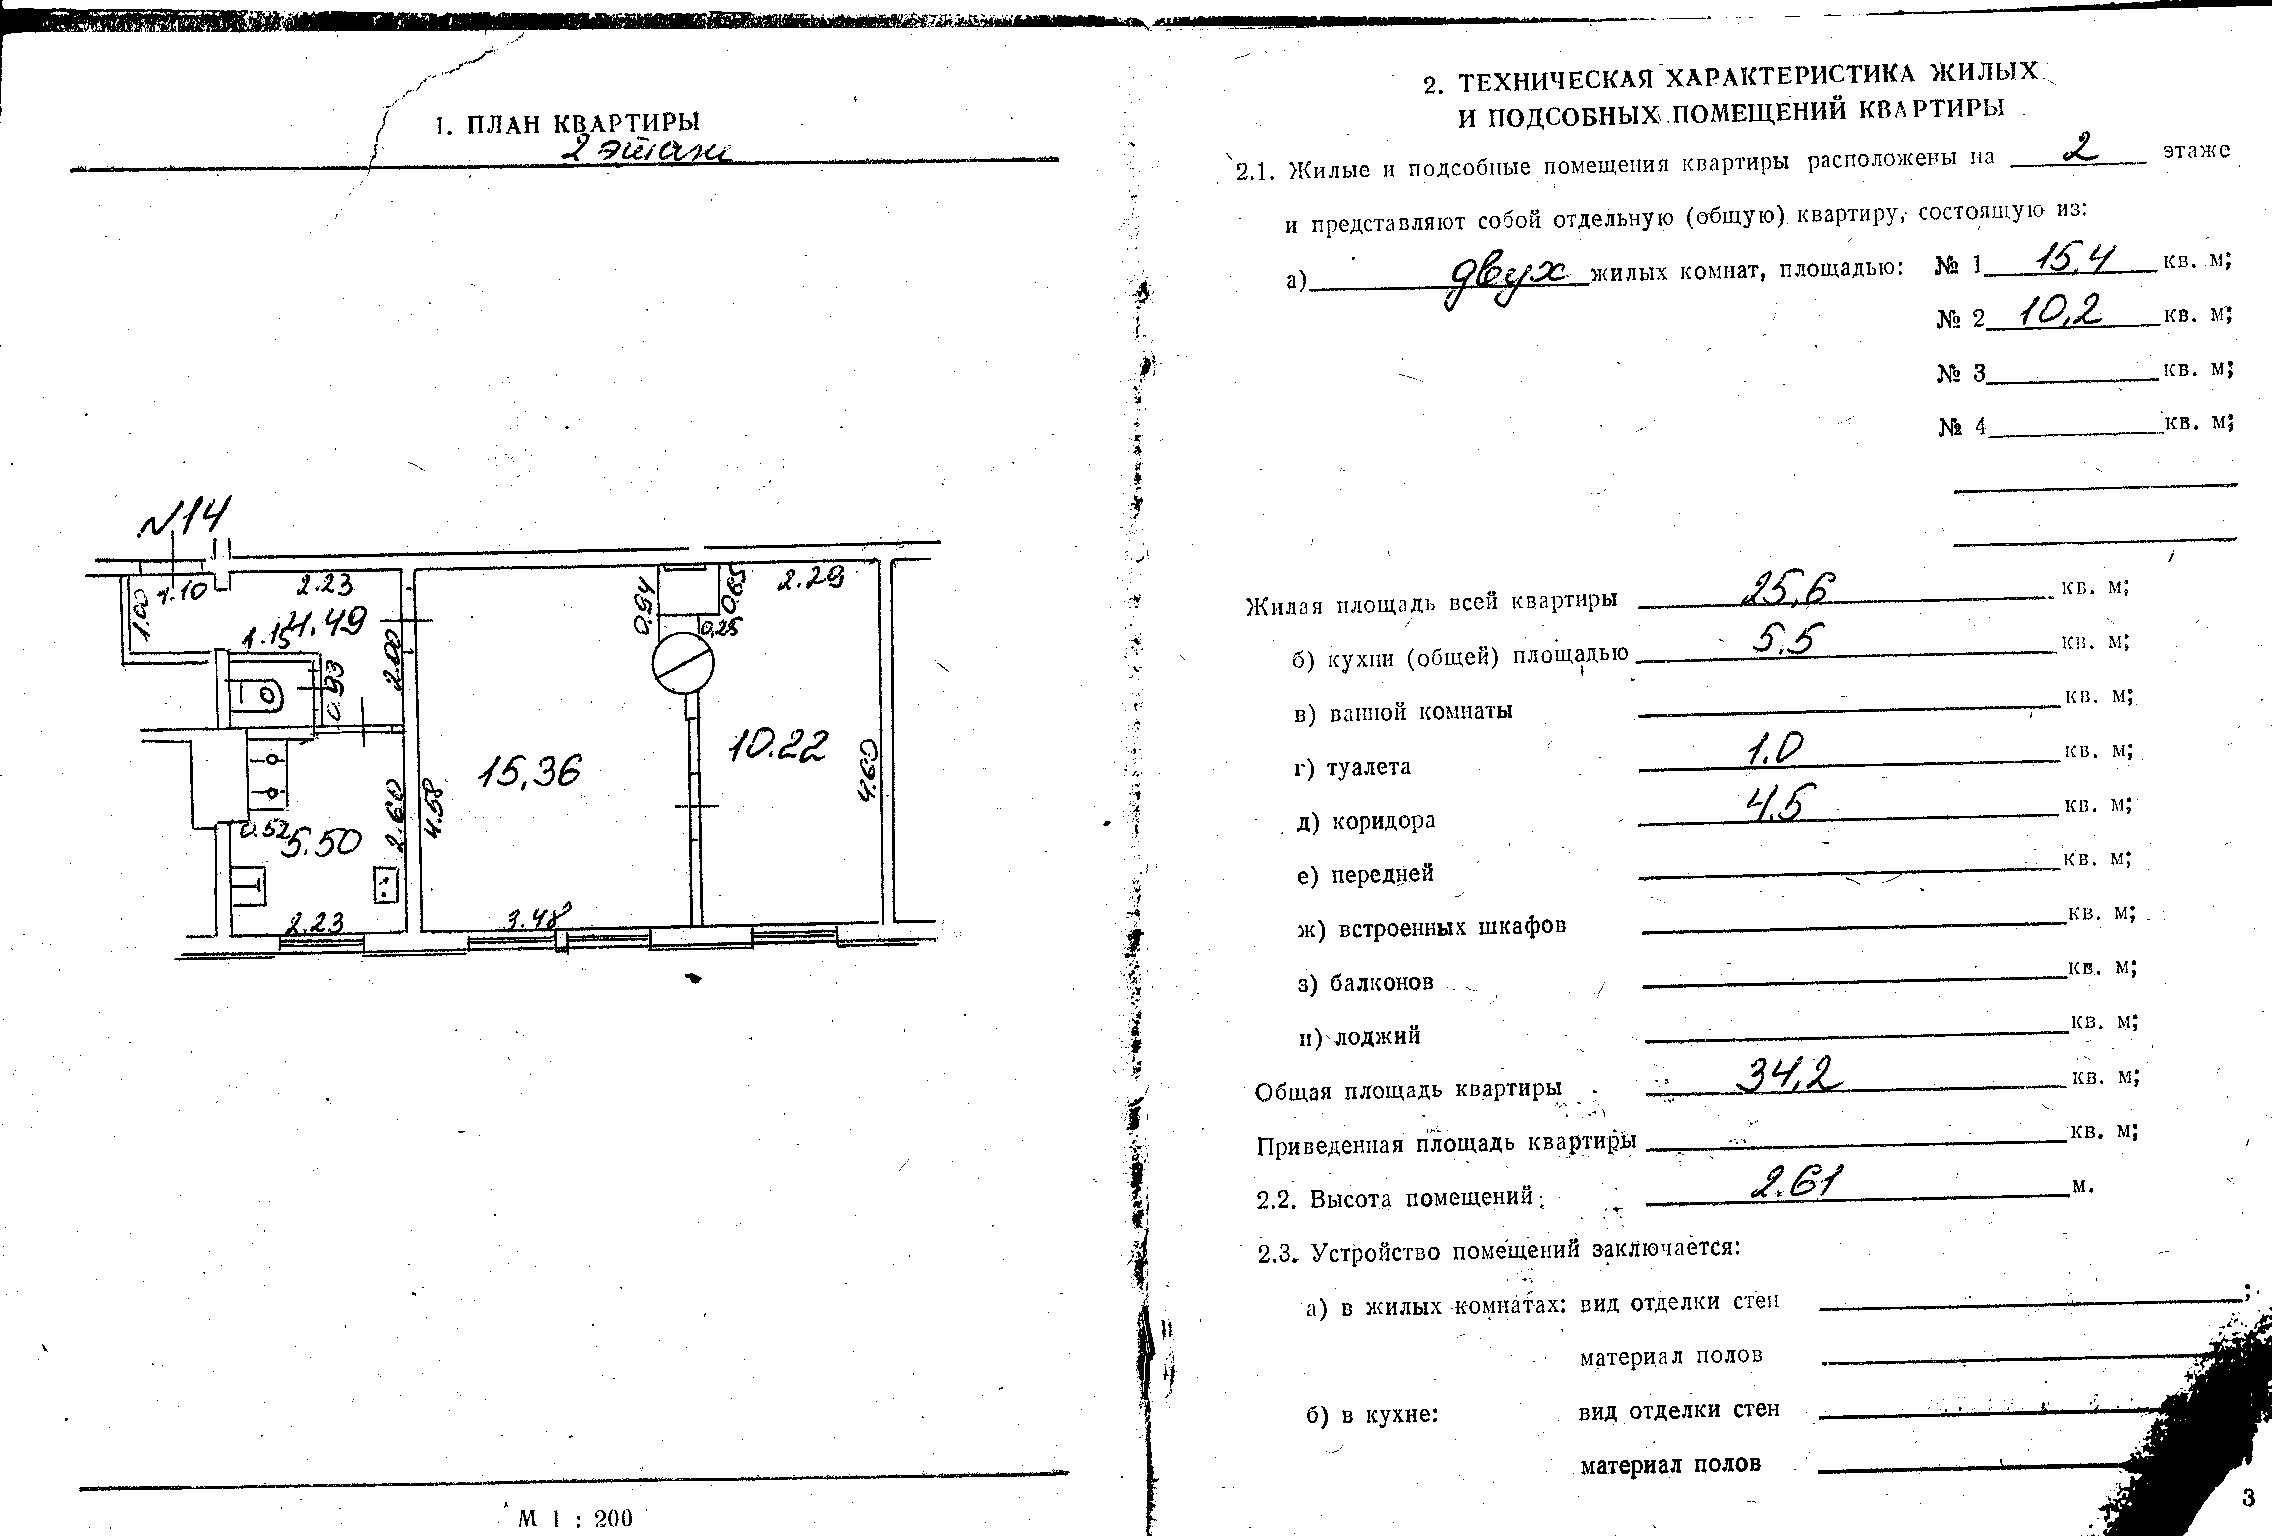 1. ПЛАН КВАРТИРЫ
2 этаж
N.14
1.10
2.23
1.00
4.49
1.15
0.93
2.00
0,94
0,65
0,25
2.29
15,36
10.22
4.60
0.52
5.50
2.60
4.58
2.23
3.48
М 1 : 200
2. ТЕХНИЧЕСКАЯ ХАРАКТЕРИСТИКА ЖИЛЫХ
И ПОДСОБНЫХ ПОМЕЩЕНИЙ КВАРТИРЫ
2.1. Жилые и подсобные помещения квартиры расположены на 2 этаже
и представляют собой отдельную (общую) квартиру, состоящую из:
а) двух жилых комнат, площадью: № 1 15,4 кв. м;
№ 2 10,2 кв. м;
№ 3 кв. м;
№ 4 кв. м;
Жилая площадь всей квартиры 25,6 кв. м;
б) кухни (общей) площадью 5,5 кв. м;
в) ванной комнаты кв. м;
г) туалета 1.0 кв. м;
д) коридора 4.5 кв. м;
е) передней кв. м;
ж) встроенных шкафов кв. м;
з) балконов кв. м;
и) лоджий кв. м;
Общая площадь квартиры 34,2 кв. м;
Приведенная площадь квартиры кв. м;
2.2. Высота помещений 2.61 м.
2.3. Устройство помещений заключается:
а) в жилых комнатах: вид отделки стен ;
материал полов
б) в кухне: вид отделки стен
материал полов
3